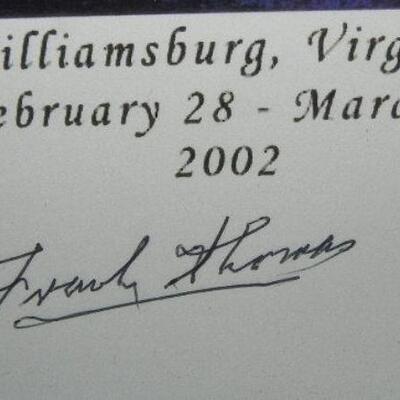 illiamsburg, Virg
ebruary 28 - Marc
2002
Frank Thomas